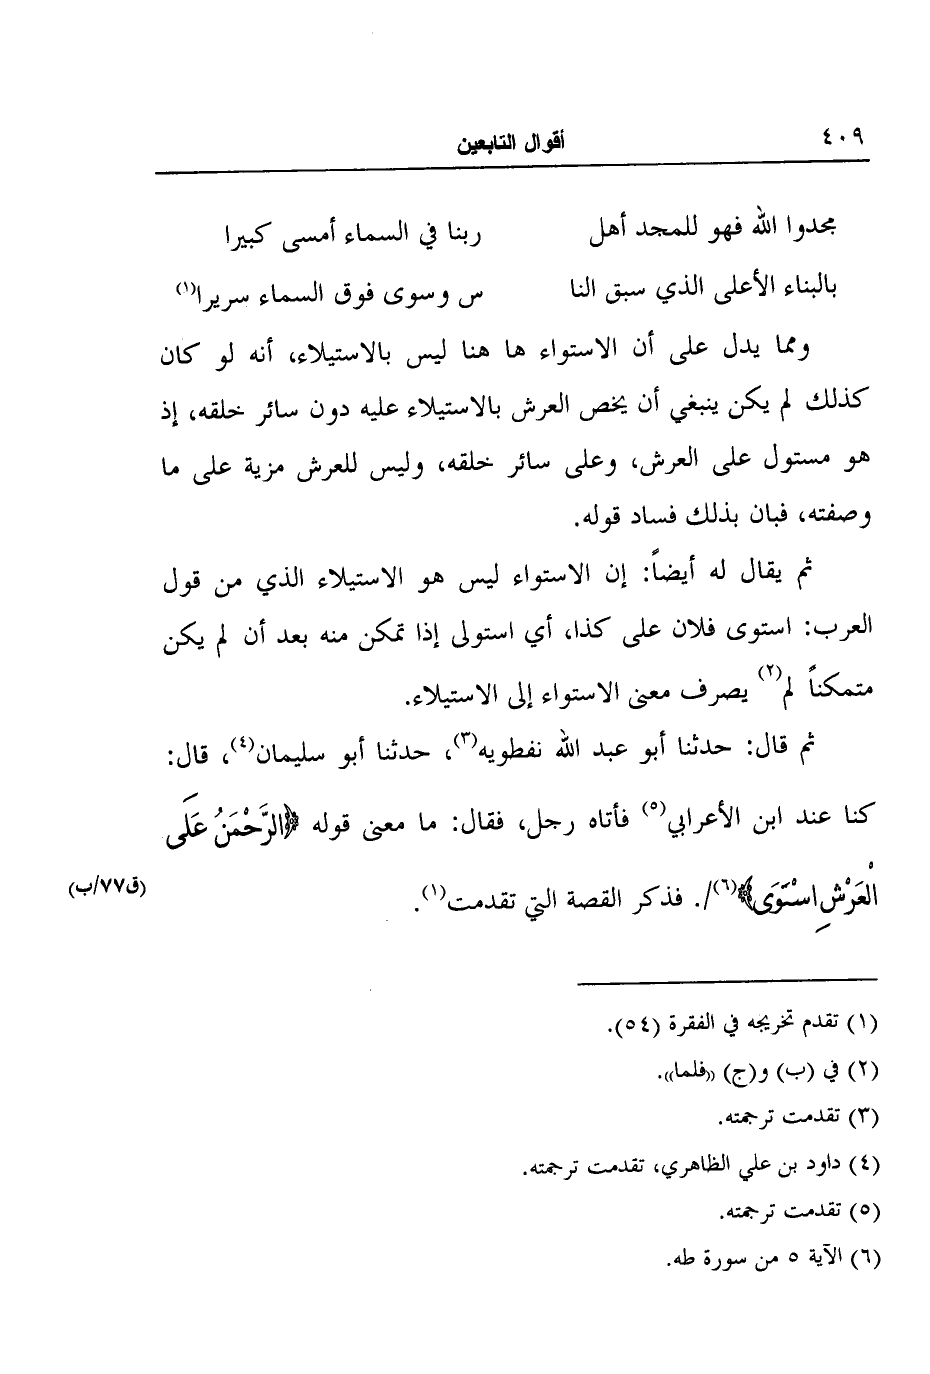 ٤٠٩
أقوال التابعين
مجدوا الله فهو للمجد أهل ربنا في السماء أمسى كبيرا
بالبناء الأعلى الذي سبق النا س وسوى فوق السماء سريرا(١)
ومما يدل على أن الاستواء ها هنا ليس بالاستيلاء، أنه لو كان
كذلك لم يكن ينبغي أن يخص العرش بالاستيلاء عليه دون سائر خلقه، إذ
هو مستول على العرش، وعلى سائر خلقه، وليس للعرش مزية على ما
وصفته، فبان بذلك فساد قوله.
ثم يقال له أيضاً: إن الاستواء ليس هو الاستيلاء الذي من قول
العرب: استوى فلان على كذا، أي استولى إذا تمكن منه بعد أن لم يكن
متمكناً لم(٢) يصرف معنى الاستواء إلى الاستيلاء.
ثم قال: حدثنا أبو عبد الله نفطويه(٣)، حدثنا أبو سليمان(٤)، قال:
كنا عند ابن الأعرابي(٥) فأتاه رجل، فقال: ما معنى قوله ﴿الرَّحْمَنُ عَلَى
الْعَرْشِ اسْتَوَى﴾(٦)/. فذكر القصة التي تقدمت(١).
(ق٧٧/ب)
(١) تقدم تخريجه في الفقرة (٥٤).
(٢) في (ب) و(ج) ((فلما)).
(٣) تقدمت ترجمته.
(٤) داود بن علي الظاهري، تقدمت ترجمته.
(٥) تقدمت ترجمته.
(٦) الآية ٥ من سورة طه.